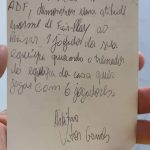 ADF, demonstram uma atitude
enorme de Fair-Play ao
1 jogador da sua
equipa quando o treinador
da equipa da casa quis
jogar com 6 jogadores
Árbitro
Vitor Gomes